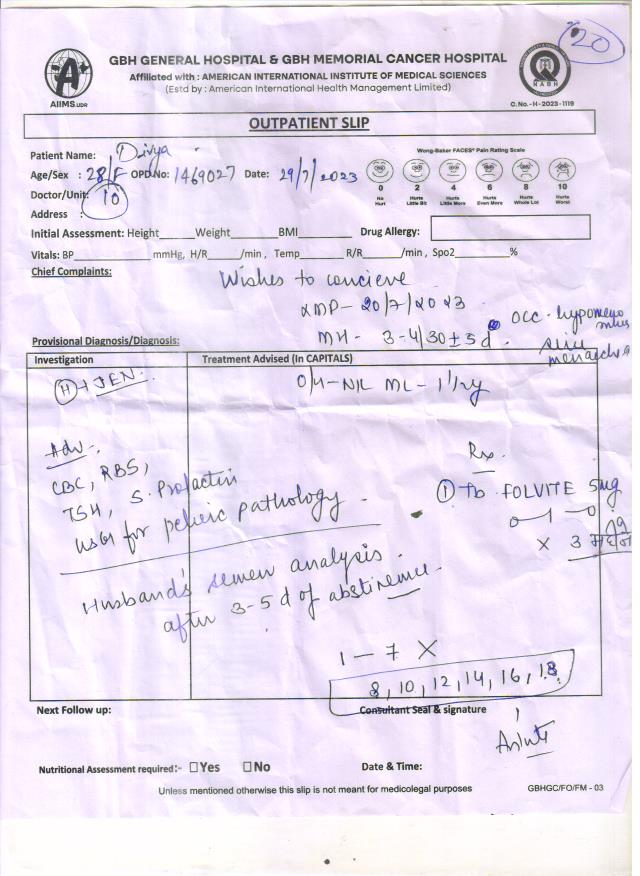 20
GBH GENERAL HOSPITAL & GBH MEMORIAL CANCER HOSPITAL
Affiliated with : AMERICAN INTERNATIONAL INSTITUTE OF MEDICAL SCIENCES
(Estd by : American International Health Management Limited)
AIIMS.UDR
NABH
C. No.-H-2023-1119
OUTPATIENT SLIP
Patient Name: Divya
Wong-Baker FACES® Pain Rating Scale
Age/Sex : 28/F OPD No: 1469027 Date: 29/7/2023
0 2 4 6 8 10
No Hurt Hurts Little Bit Hurts Little More Hurts Even More Hurts Whole Lot Hurts Worst
Doctor/Unit: 10
Address :
Initial Assessment: Height Weight BMI Drug Allergy:
Vitals: BP mmHg, H/R /min, Temp R/R /min, Spo2 %
Chief Complaints:
Wishes to concieve
LMP- 20/7/2023
MH - 3-4/30±5d. occ. hypomeno
menarche
Provisional Diagnosis/Diagnosis:
Investigation Treatment Advised (In CAPITALS)
O/H-NIL ML-1½y
Adv-
CBC, RBS,
TSH, S. Prolactin
USG for pelvic pathology -
Rx
① Tb FOLVITE 5mg
0-1-0
X 3
Husband's semen analysis.
after 3-5 d of abstinence.
1-7 X
8, 10, 12, 14, 16, 18.
Next Follow up: Consultant Seal & signature
Nutritional Assessment required:- Yes No Date & Time:
Unless mentioned otherwise this slip is not meant for medicolegal purposes GBHGC/FO/FM - 03